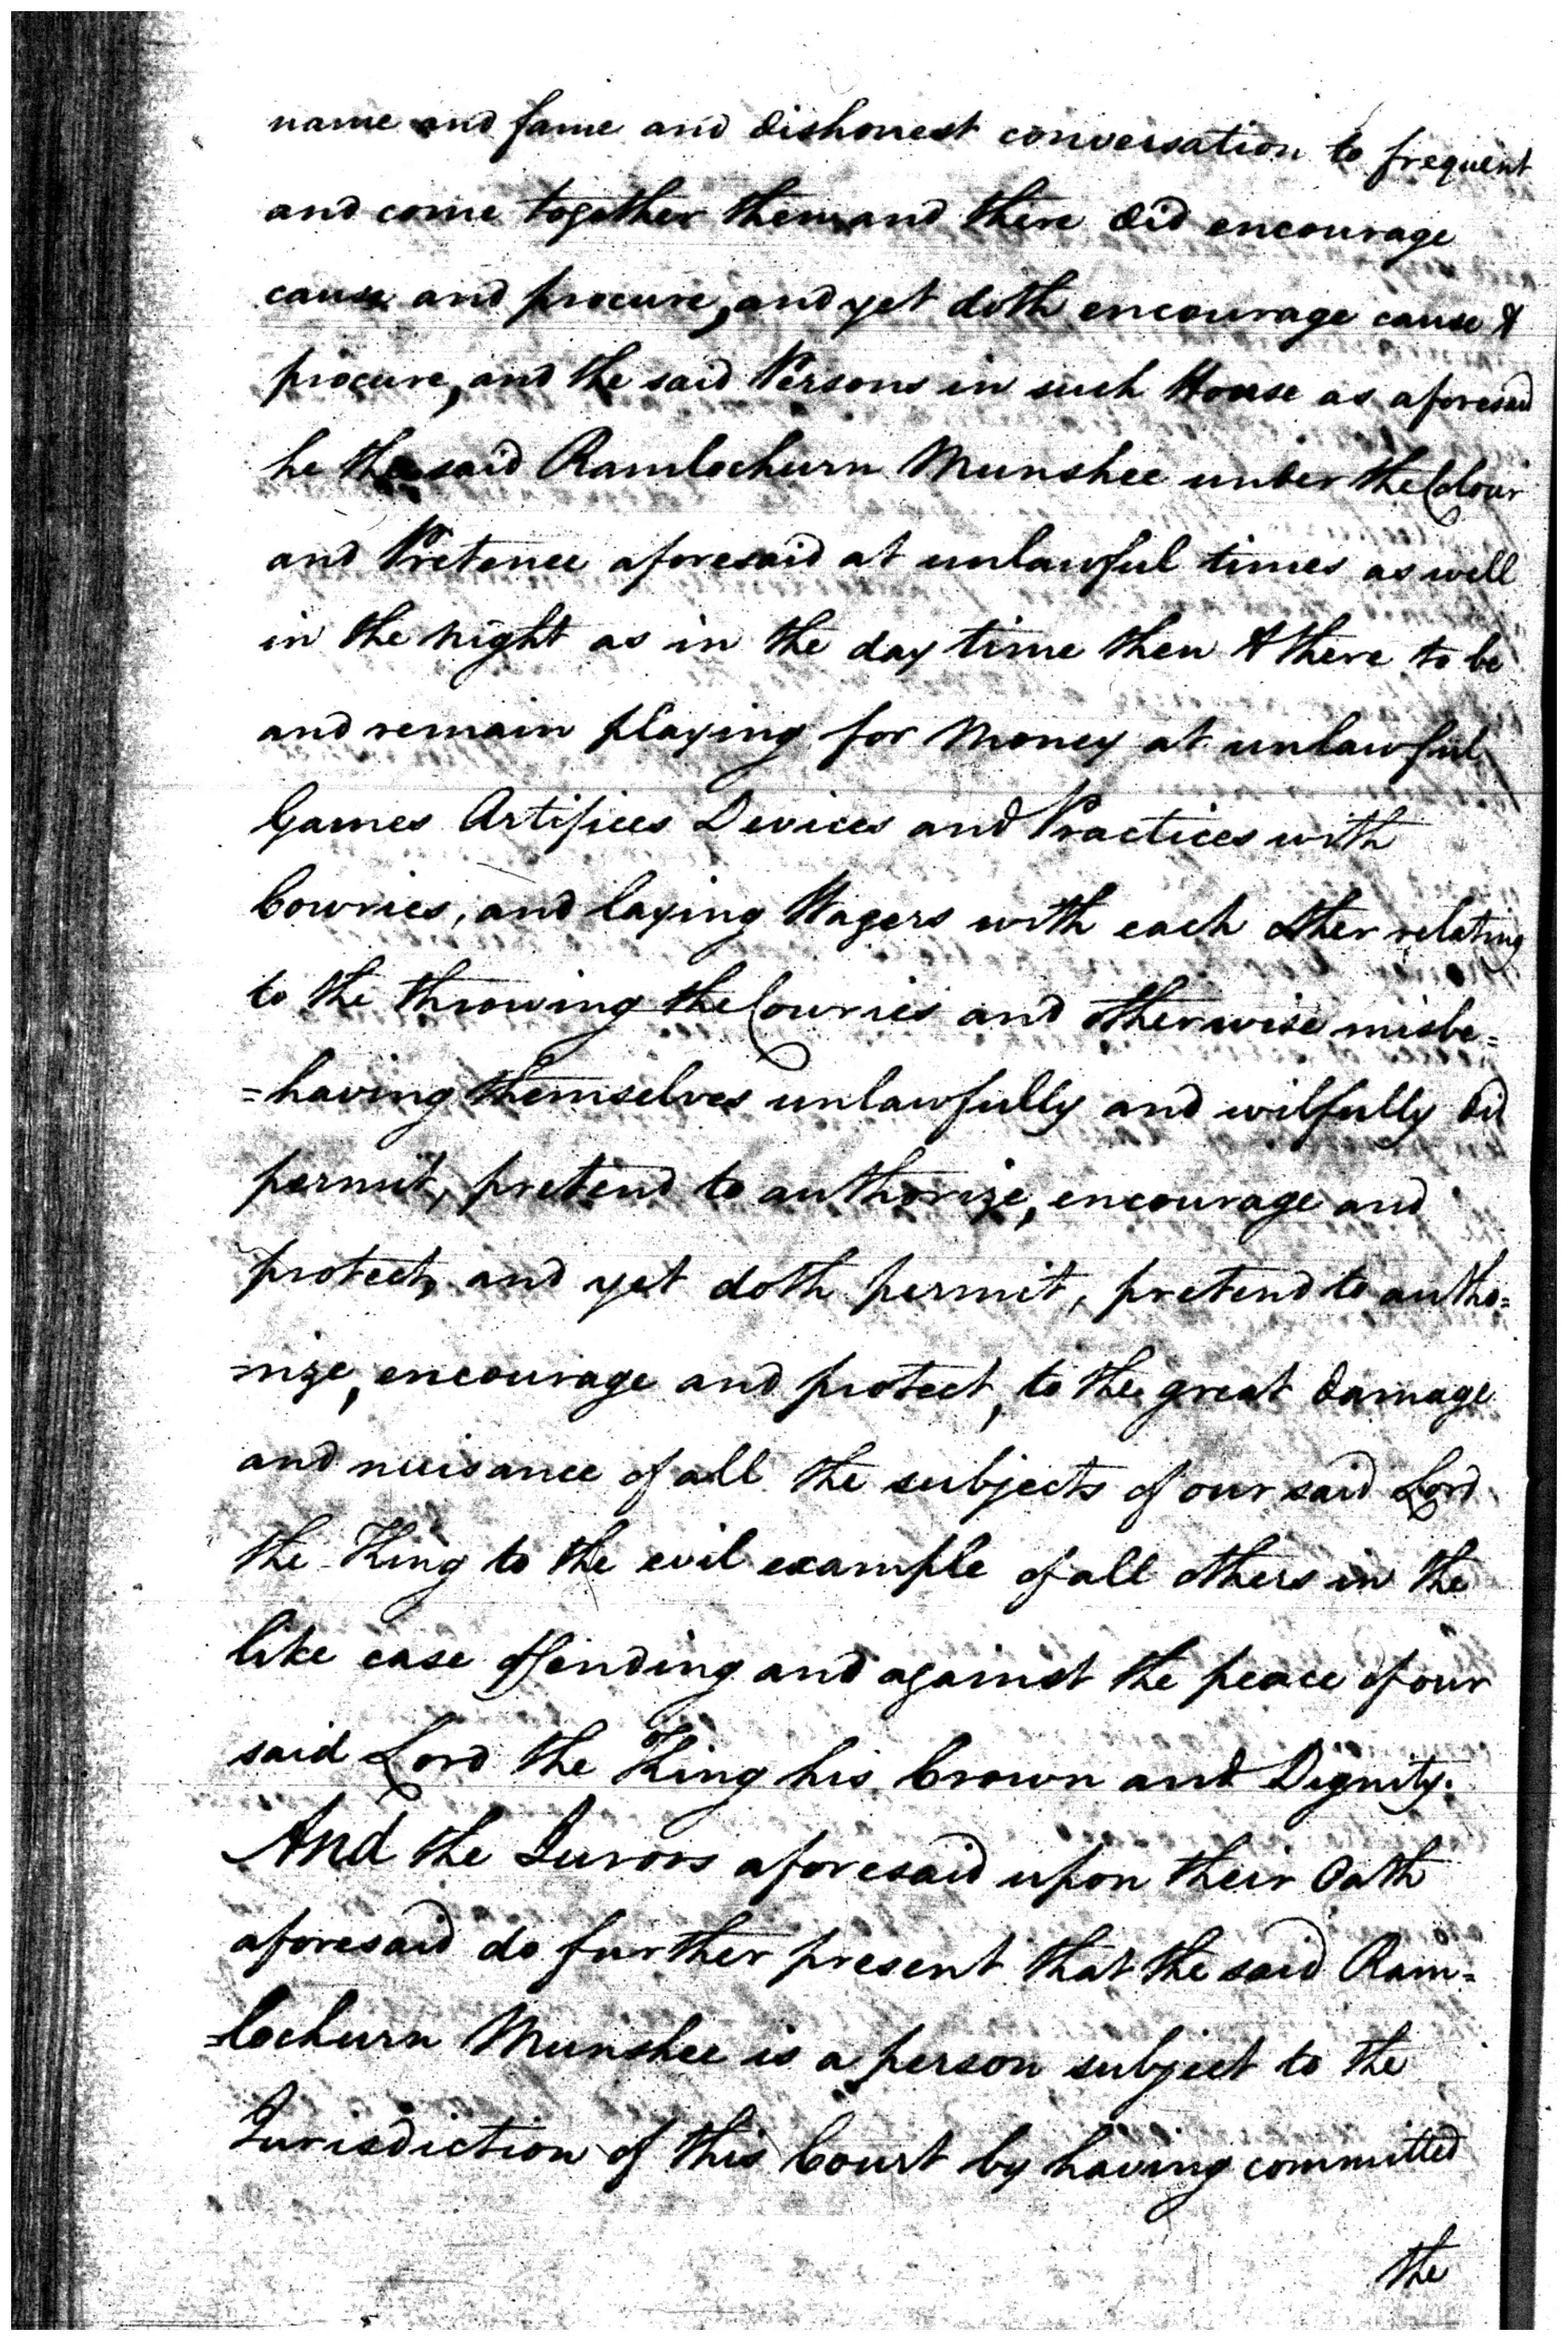 name and fame and dishonest conversation to frequent
and come together then and there did encourage
cause and procure, and yet doth encourage cause &
procure, and the said Persons in such House as aforesaid
he the said Ramlochurn Munshee under the Colour
and Pretence aforesaid at unlawful times as well
in the night as in the day time then & there to be
and remain playing for Money at unlawful
Games Artifices Devices and Practices with
Cowries, and laying Wagers with each other relating
to the throwing the Cowries and otherwise misbe=
=having themselves unlawfully and wilfully did
permit, pretend to authorize, encourage and
protect, and yet doth permit, pretend to autho=
rize, encourage and protect, to the great damage
and nuisance of all the subjects of our said Lord
the King to the evil example of all others in the
like case offending and against the peace of our
said Lord the King his Crown and Dignity.
And the Jurors aforesaid upon their Oath
aforesaid do further present that the said Ram=
=lochurn Munshee is a person subject to the
Jurisdiction of this Court by having committed
the